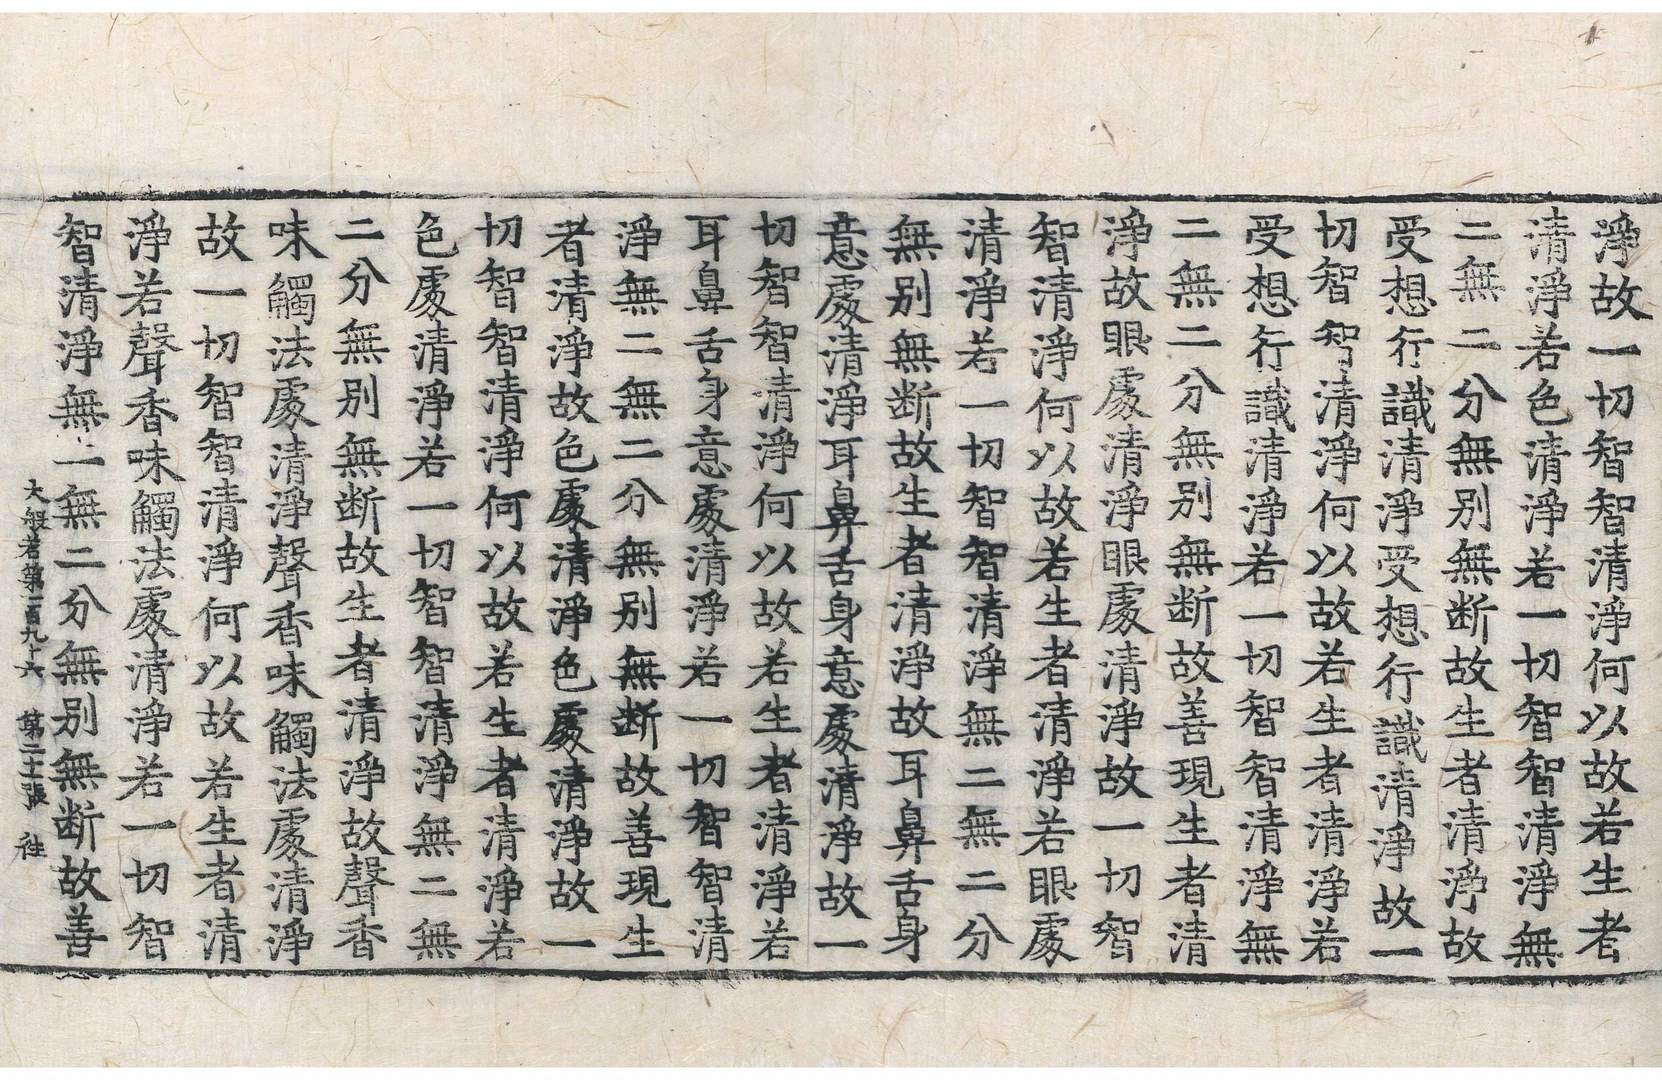 淨故一切智智清淨何以故若生者
清淨若色清淨若一切智智清淨無
二無二分無別無断故生者清淨故
受想行識清淨受想行識清淨故一
切智智清淨何以故若生者清淨若
受想行識清淨若一切智智清淨無
二無二分無別無断故善現生者清
淨故眼處清淨眼處清淨故一切智
智清淨何以故若生者清淨若眼處
清淨若一切智智清淨無二無二分
無別無断故生者清淨故耳鼻舌身
意處清淨耳鼻舌身意處清淨故一
切智智清淨何以故若生者清淨若
耳鼻舌身意處清淨若一切智智清
淨無二無二分無別無断故善現生
者清淨故色處清淨色處清淨故一
切智智清淨何以故若生者清淨若
色處清淨若一切智智清淨無二無
二分無別無断故生者清淨故聲香
味觸法處清淨聲香味觸法處清淨
故一切智智清淨何以故若生者清
淨若聲香味觸法處清淨若一切智
智清淨無二無二分無別無断故善
大般若第一百九十六 第二十一張 徃